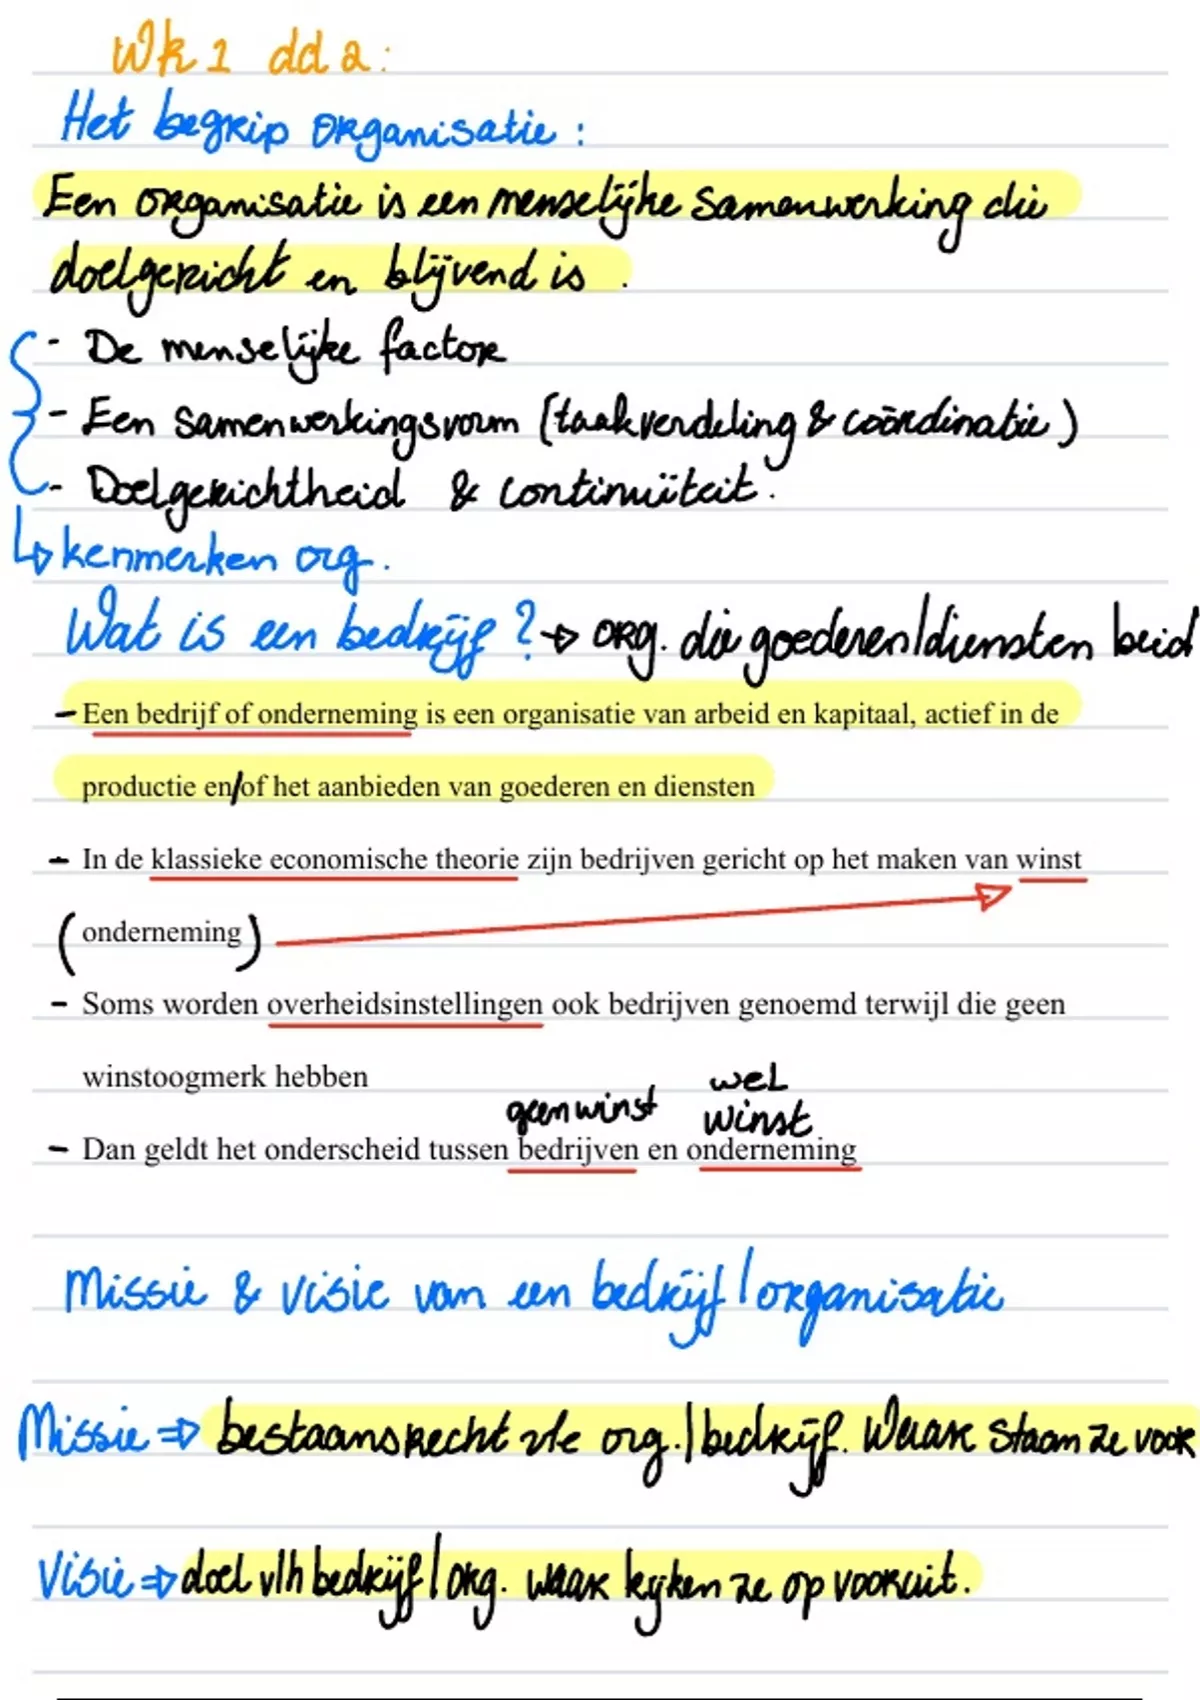 Wk 1 dd 2:
Het begrip organisatie:
Een organisatie is een menselijke samenwerking die
doelgericht en blijvend is.
- De menselijke factor
- Een samenwerkingsvorm (taakverdeling & coördinatie)
- Doelgerichtheid & continuïteit.
↳ kenmerken org.
Wat is een bedrijf? → org. die goederen/diensten beid
- Een bedrijf of onderneming is een organisatie van arbeid en kapitaal, actief in de
productie en/of het aanbieden van goederen en diensten
- In de klassieke economische theorie zijn bedrijven gericht op het maken van winst
(onderneming)
- Soms worden overheidsinstellingen ook bedrijven genoemd terwijl die geen
winstoogmerk hebben
geen winst wel winst
- Dan geldt het onderscheid tussen bedrijven en onderneming
Missie & visie van een bedrijf/organisatie
Missie ⇒ bestaansrecht vde org./bedrijf. Waar staan ze voor
Visie ⇒ doel v/h bedrijf/org. waar kijken ze op vooruit.